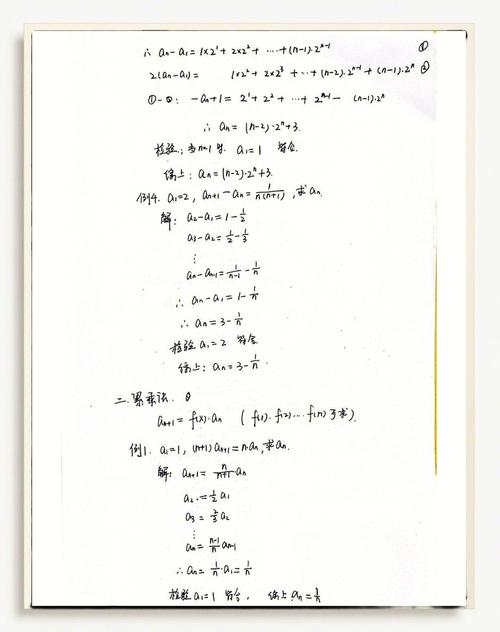 ∴ aₙ-a₁=1×2¹+2×2²+ ⋯ +(n-1)·2ⁿ⁻¹ ①
2(aₙ-a₁)= 1×2²+2×2³+ ⋯ +(n-2)·2ⁿ⁻¹+(n-1)·2ⁿ ②
①-②: -aₙ+1= 2¹+2²+ ⋯ +2ⁿ⁻¹- (n-1)·2ⁿ
∴ aₙ=(n-2)·2ⁿ+3.
检验:当n=1时. a₁=1 符合.
综上: aₙ=(n-2)·2ⁿ+3.
例4. a₁=2, aₙ₊₁-aₙ=1/n(n+1),求aₙ.
解: a₂-a₁=1-1/2
a₃-a₂=1/2-1/3
⋮
aₙ-aₙ₋₁=1/(n-1)-1/n
∴ aₙ-a₁=1-1/n
∴ aₙ=3-1/n
检验a₁=2 符合
综上: aₙ=3-1/n.
二.累乘法.
aₙ₊₁=f(x)·aₙ ( f(1)·f(2)…f(n)可求).
例1. a₁=1, (n+1)aₙ₊₁=n·aₙ,求aₙ.
解: aₙ₊₁=n/(n+1)aₙ
a₂=1/2a₁
a₃=2/3a₂
⋮
aₙ=(n-1)/n aₙ₋₁
∴aₙ=1/n·a₁=1/n
检验a₁=1 符合, 综上:aₙ=1/n